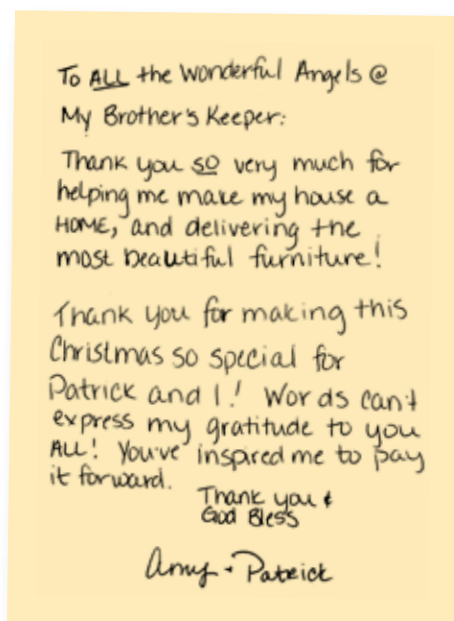 To ALL the Wonderful Angels @
My Brother's Keeper:
Thank you so very much for
helping me make my house a
HOME, and delivering the
most beautiful furniture!
Thank you for making this
Christmas so special for
Patrick and I! Words can't
express my gratitude to you
ALL! You've inspired me to pay
it forward.
Thank you &
God Bless
Amy + Patrick